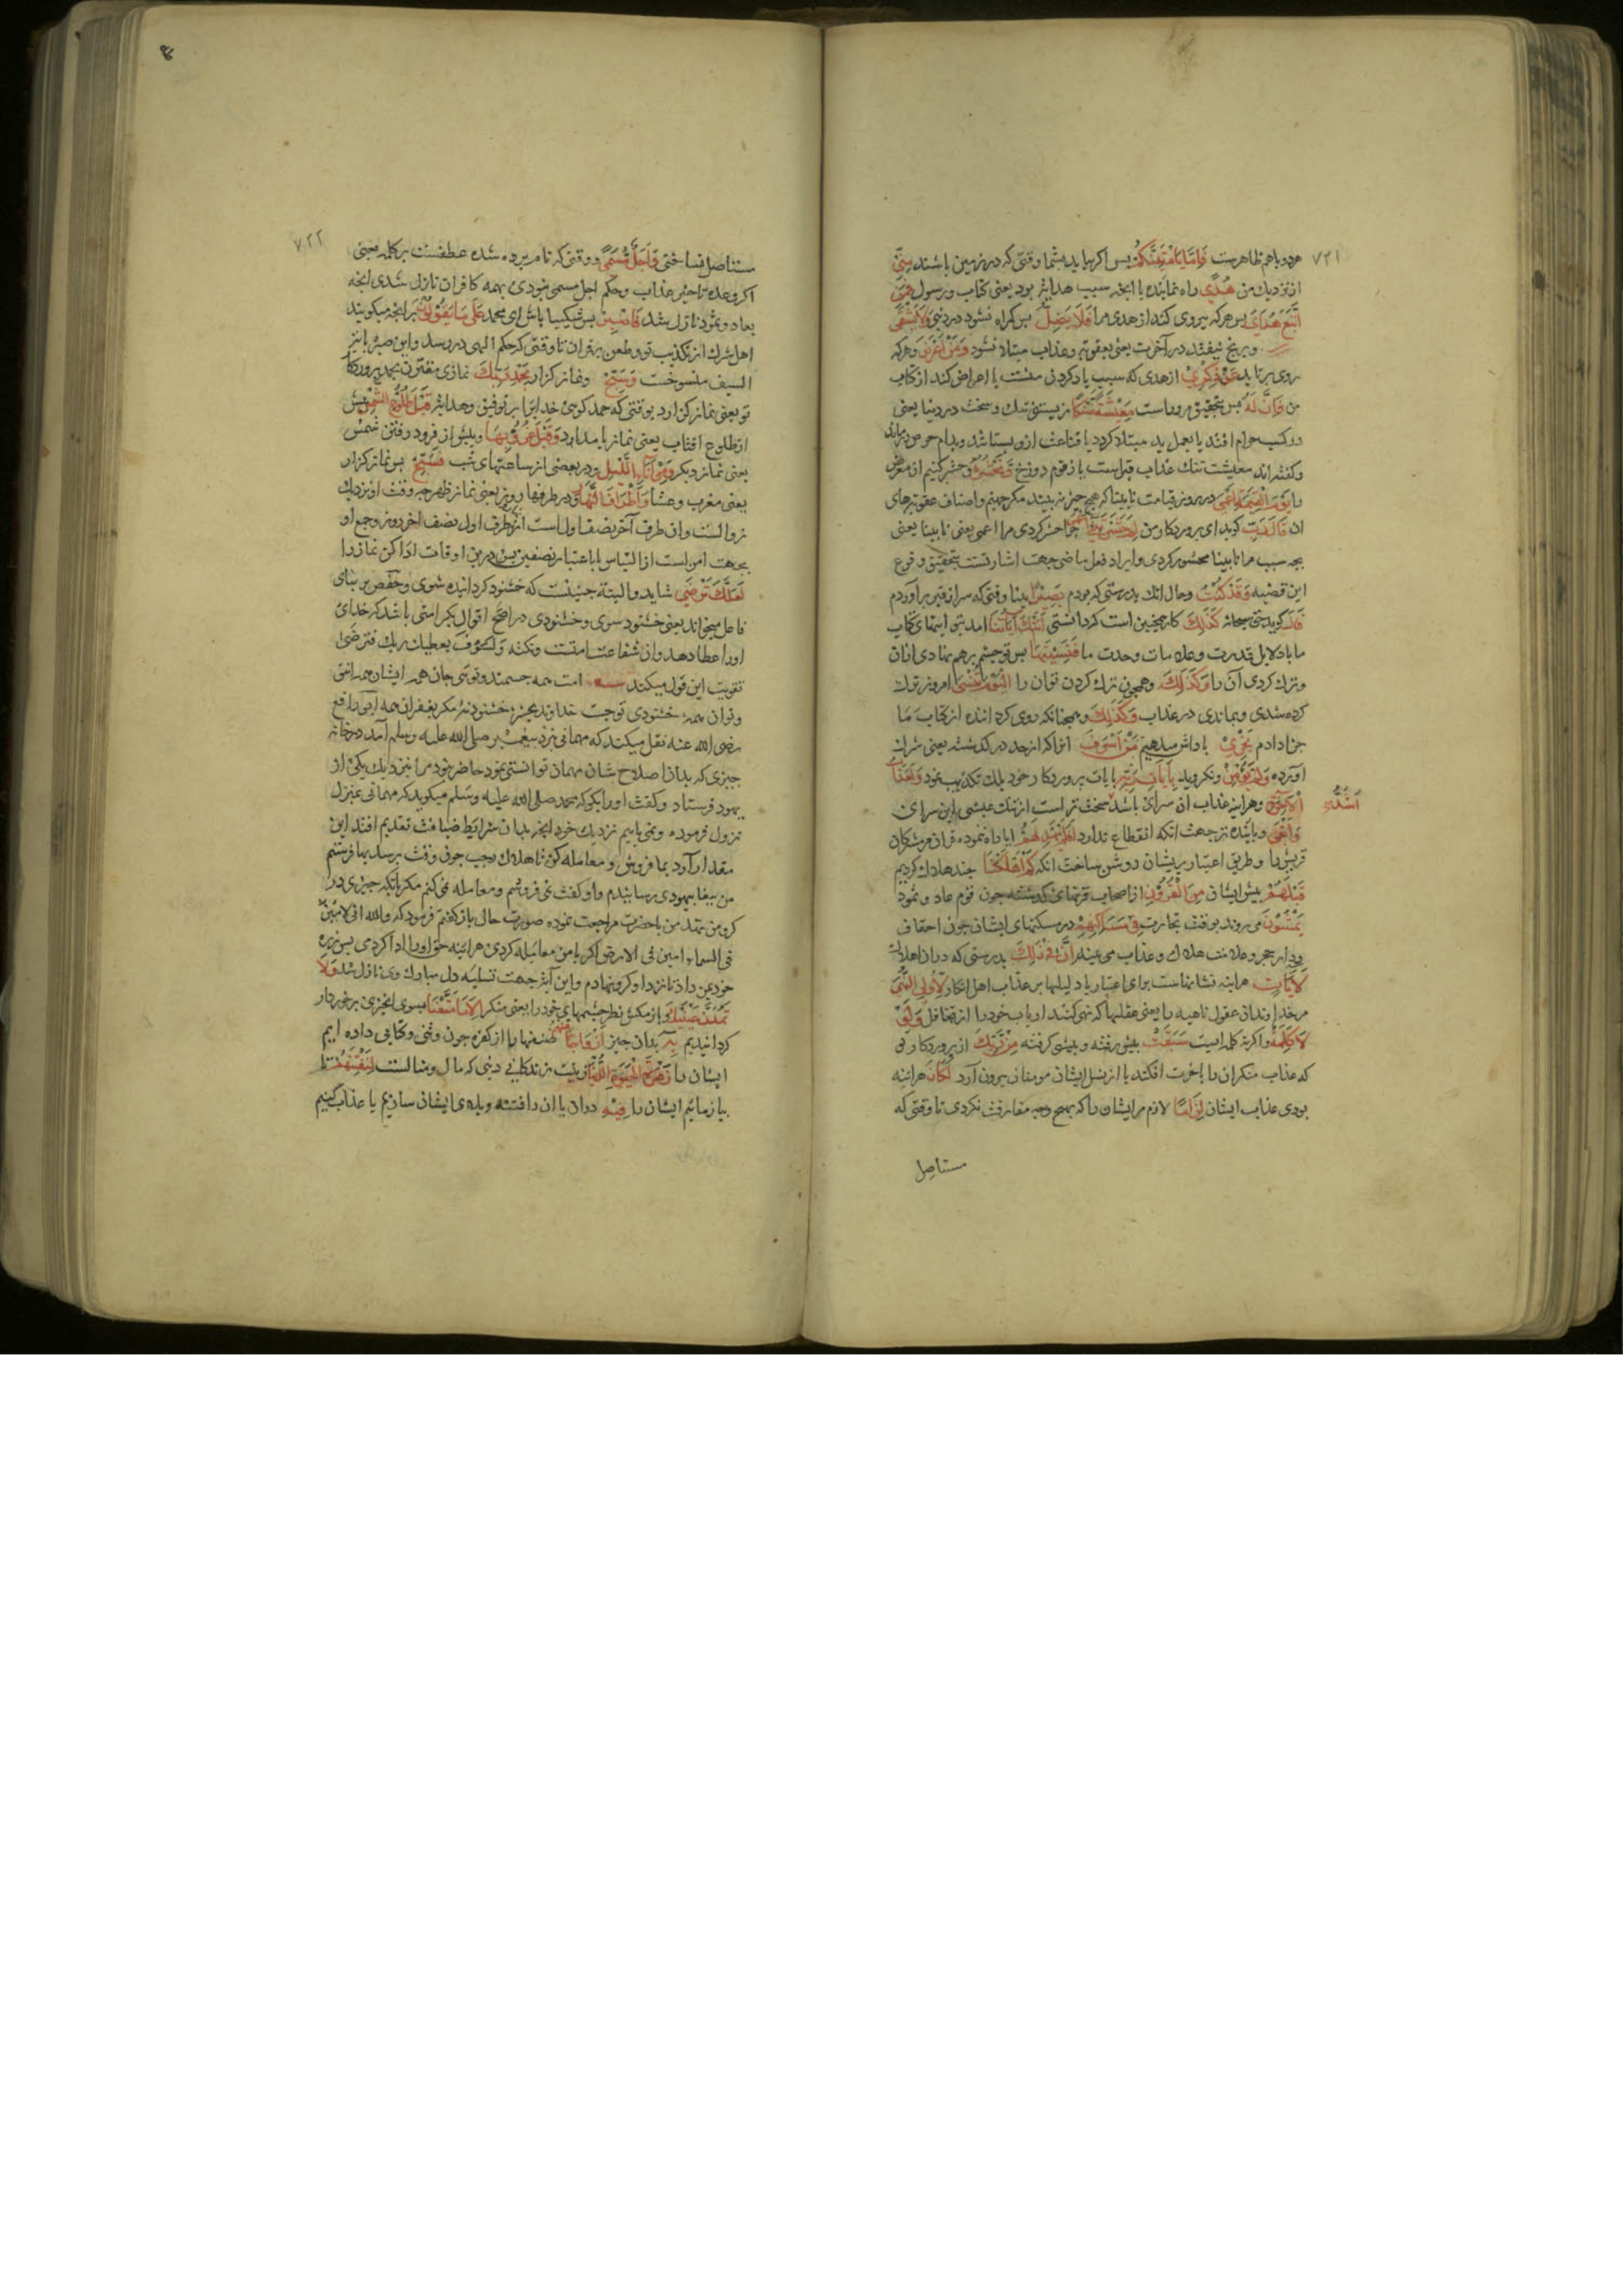 ۷۲۱
هردو باهم ظاهرست فَاِمَّا يَأتِيَنَّكُمْ پس اكر بيايد بشما وقتی كه در زمين باشند مِنِّی
از نزديك من هُدًی راه نماينده يا انچه سبب هدايت بود يعنی كتاب و رسول فَمَنِ
اتَّبَعَ هُدَایَ پس هركه پيروی كند از هدی مرا فَلَا يَضِلُّ پس كمراه نشود در دنيی وَلَا يَشْقَی
و برنج نيفتد در آخرت يعنی بعقوبت و عذاب مبتلا نشود وَمَنْ اَعْرَضَ و هركه
روی برتابد عَنْ ذِكْرِیْ از هدی كه سبب ياد كردن منست يا اعراض كند از كتاب
من فَاِنَّ لَهُ پس بتحقيق مر وراست مَعِيْشَةً ضَنْكًا زيستنی تنك و سخت در دنيا يعنی
در كسب حرام افتد يا بعمل بد مبتلا كردد يا قناعت ازو بستانند و بدام حرص درماند
و كفته اند معيشت تنك عذاب قبراست يا زقوم دوزخ وَنَحْشُرُهُ و حشر كنيم از معرض
را يَوْمَ الْقِيمَةِ اَعْمَی در روز قيامت نابينا كه هيچ چيز نه بيند مكر جهنم و اصناف عقوبتهای
ان قَالَ رَبِّ كويد ای پروردكار من لِمَ حَشَرْتَنِیْ اَعْمَی چرا حشر كردی مرا اعمی يعنی نابينا يعنی
بچه سبب مرا نابينا محشور كردی و ايراد فعل ماضی جهت اشارتست بتحقيق وقوع
اين قضيه وَقَدْ كُنْتُ و حال انك بدرستی كه بودم بَصِيْرًا بينا وقتی كه سر از قبر برآوردم
قَالَ كويد حق سبحانه كَذٰلِكَ كار همچنين است كه دانستی اَتَتْكَ آيَاتُنَا امد بتو ايتهای كتاب
ما با دلايل قدرت و علامات وحدت ما فَنَسِيْتَهَا پس تو چشم برهم نهادی ازان
و ترك كردی آن را وَكَذٰلِكَ و همچون ترك كردن تو ان را الْيَوْمَ تُنْسَی امروز ترك
كرده شدی و بماندی در عذاب وَكَذٰلِكَ و همچنانكه روی كرداننده از كتاب ما
جزا دادم نَجْزِیْ پاداش ميدهيم مَنْ اَسْرَفَ انرا كه از حد در كذشته يعنی شرك
آورده وَلَمْ يُؤْمِنْ و نكرويد بِآيَاتِ رَبِّهِ بايات پروردكار خود بلك تكذيب نمود وَلَعَذَابُ
الْآخِرَةِ و هراينه عذاب ان سرای باشد سخت تراست از تنك عيشی اين سرای
اَشَدُّ
وَاَبْقَی و پاينده تر جهت انكه انقطاع ندارد اَفَلَمْ يَهْدِ لَهُمْ ايا راه ننموده قران مر مشركان
قريش را و طريق اعتبار بريشان روشن ساخت انكه كَمْ اَهْلَكْنَا چند هلاك كرديم
قَبْلَهُمْ پيش ايشان مِنَ الْقُرُوْنِ از اصحاب قرنهای كذشته چون قوم عاد و ثمود
يَمْشُوْنَ می روند بوقت تجارت فِیْ مَسَاكِنِهِمْ در مسكنهای ايشان چون احقاف
و ديار حجر و علامت هلاك و عذاب می بينند اِنَّ فِیْ ذٰلِكَ بدرستی كه دران اهلاك
لَآيَاتٍ هراينه نشانهاست برای اعتبار يا دليلها بر عذاب اهل انكار لِاُولِی النُّهَی
مر خداوندان عقول ناهيه را يعنی عقلها كه نهی كنند ارباب خود را از تغافل وَلَوْ
لَا كَلِمَةٌ و اكر نه كلمه ايست سَبَقَتْ پيش رفته و پيشی كرفته مِنْ رَبِّكَ از پروردكار تو
كه عذاب منكران را باخرت افكند يا از نسل ايشان مومنان بيرون آرد لَكَانَ هراينه
بودی عذاب ايشان لِزَامًا لازم مر ايشان را كه بهيچ وجه مفارقت نكردی تا وقتی كه
مستاصل
۷۲۲
مستاصل نساختی وَاَجَلٌ مُّسَمًّی و وقتی كه نام برده شده عطفست بر كلمه يعنی
اكر وعده تاخير عذاب و حكم اجل مسمی نبودی بهمه كافران نازل شدی انچه
بعاد و ثمود نازل شد فَاصْبِرْ پس شكيبا باش ای محمد عَلَی مَا يَقُوْلُوْنَ بر انچه ميكويند
اهل شرك از تكذيب تو و طعن بقران تا وقتی كه حكم الهی در رسد و اين صبر بايتر
السيف منسوخست وَسَبِّحْ و نماز كزار بِحَمْدِ رَبِّكَ نمازی مقترن بحمد پروردكار
تو يعنی نماز كزارد بوقتی كه حمد كوئی خدايرا بر توفيق و هدايت قَبْلَ طُلُوْعِ الشَّمْسِ پيش
از طلوع افتاب يعنی نماز بامداد وَقَبْلَ غُرُوْبِهَا و پيش از فرود رفتن شمس
يعنی نماز ديكر وَمِنْ آنَاءِ اللَّيْلِ و در بعضی از ساعتهای شب فَسَبِّحْ پس نماز كزار
يعنی مغرب و عشا وَاَطْرَافَ النَّهَارِ و در طرفهای روز يعنی نماز ظهر چه وقت او نزديك
زوالست و ان طرف آخر نصف اول است از طرف اول نصف اخر روز و جمع او
بجهت امن لبست از التباس يا باعتبار نصفين پس درين اوقات ادا كن نماز را
لَعَلَّكَ تَرْضَی شايد و البته چنينست كه خشنود كردانيده شوی و حفص بر بنای
فاعل ميخواند يعنی خشنود شوی و خشنودی در اصح اقوال بكرامتی باشد كه خدای
اورا عطا دهد و ان شفاعت امتست و نكته وَلَسَوْفَ يعطيك ربك فترضی
تقويت اين قول ميكند امت همه جسمند و تويی جان همه ايشان همه انِ تو
و تو ان همه خشنودی تو جست خداوند بمحشر خشنود نه مكر بغفران همه ابی رافع
رضی الله عنه نقل ميكند كه مهمانی نزد پيغمبر صلی الله عليه وسلم آمد در خانه
چيزی كه بدان اصلاح شان مهمان توانستی نمود حاضر نبود مرا نزديك يكی از
يهود فرستاد و كفت اورا بكو كه محمد صلی الله عليه وسلم ميكويد كه مهمانی بمنزل
نزول فرموده و نمی يابيم نزديك خود انچه بدان شرايط ضيافت تقديم افتد اين
مقدار آرد بما فروش و معامله كن تا هلال رجب چون وقت برسد بها فرستم
من پيغام بيهودی برسانيدم و او كفت نمی فروشم و معامله نمی كنم مكر بانكه چيزی در
كرو من نهند من بحضرت مراجعت نموده صورت حال باز كفتم فرمود كه والله انی لامين
فی السماء امين فی الارض اكر با من معامله كردی هراينه حق اورا ادا كردمی پس زره
خود بمن داد تا نزد او كرو نهادم و اين آيت جهت تسليه دل مبارك وی نازل شد وَلَا
تَمُدَّنَّ عَيْنَيْكَ و باز مكش نظر چشمهای خود را يعنی منكر اِلَی مَا مَتَّعْنَا بسوی انچيزی برخوردار
كردانيديم بِهٖ بدان چيز اَزْوَاجًا مِنْهُمْ صنفها را از كفره چون وثنی و كتابی داده ايم
ايشان را زَهْرَةَ الْحَيٰوةِ الدُّنْيَا زينت زندكانی دنيی كه مال و منالست لِنَفْتِنَهُمْ تا
بيازمائيم ايشان را فِيْهِ دران يا ان را فتنه و بلای ايشان سازيم يا عذاب كنيم